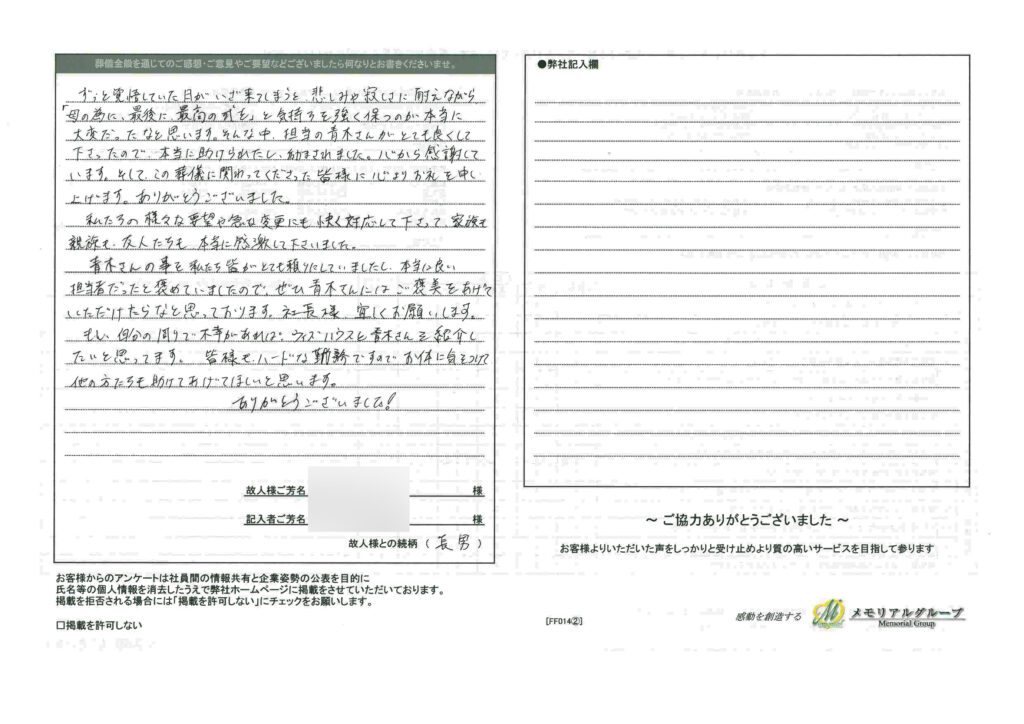 葬儀全般を通じてのご感想・ご意見やご要望などございましたら何なりとお書きくださいませ。
ずっと覚悟していた日がいざ来てしまうと、悲しみや寂しさに耐えながら
「母の為に、最後に、最高の式を」と気持ちを強く保つのが本当に
大変だったなと思います。そんな中、担当の青木さんがとても良くして
下さったので、本当に助けられたし、励まされました。心から感謝して
います。そして、この葬儀に関わってくださった皆様に心よりお礼を申し
上げます。ありがとうございました。
私たちの様々な要望や急な変更にも快く対応して下さって、家族も
親族も、友人たちも、本当に感激して下さいました。
青木さんの事を私たち皆がとても頼りにしていましたし、本当に良い
担当者だったと褒めていましたので、ぜひ青木さんにはご褒美をあげて
いただけたらなと思っております。社長様、宜しくお願いします。
もし、自分の周りで不幸があれば、ウィズハウスと青木さんを紹介し
たいと思ってます。 皆様も、ハードな勤務ですので、お体に気をつけて
他の方たちも助けてあげてほしいと思います。
ありがとうございました!
故人様ご芳名 様
記入者ご芳名 様
故人様との続柄 ( 長男 )
お客様からのアンケートは社員間の情報共有と企業姿勢の公表を目的に
氏名等の個人情報を消去したうえで弊社ホームページに掲載をさせていただいております。
掲載を拒否される場合には「掲載を許可しない」にチェックをお願いします。
□掲載を許可しない
●弊社記入欄
～ ご協力ありがとうございました ～
お客様よりいただいた声をしっかりと受け止めより質の高いサービスを目指して参ります
[FF014②]
感動を創造する
メモリアルグループ
Memorial Group